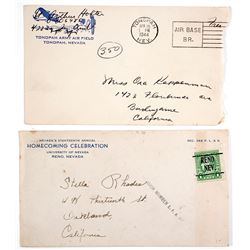 TONOPAH ARMY AIR FIELD
TONOPAH, NEVADA
TONOPAH
NEV.
1944
AIR BASE
BR.
Free
350
Miss Ora Kapperman
1426 Floribunda Ave
Burlingame
California
NEVADA'S EIGHTEENTH ANNUAL
HOMECOMING CELEBRATION
UNIVERSITY OF NEVADA
RENO, NEVADA
SEC. 562 P. L. & R.
RENO
NEV.
Stella Rhodes
498 Thirtieth St
Oakland
California